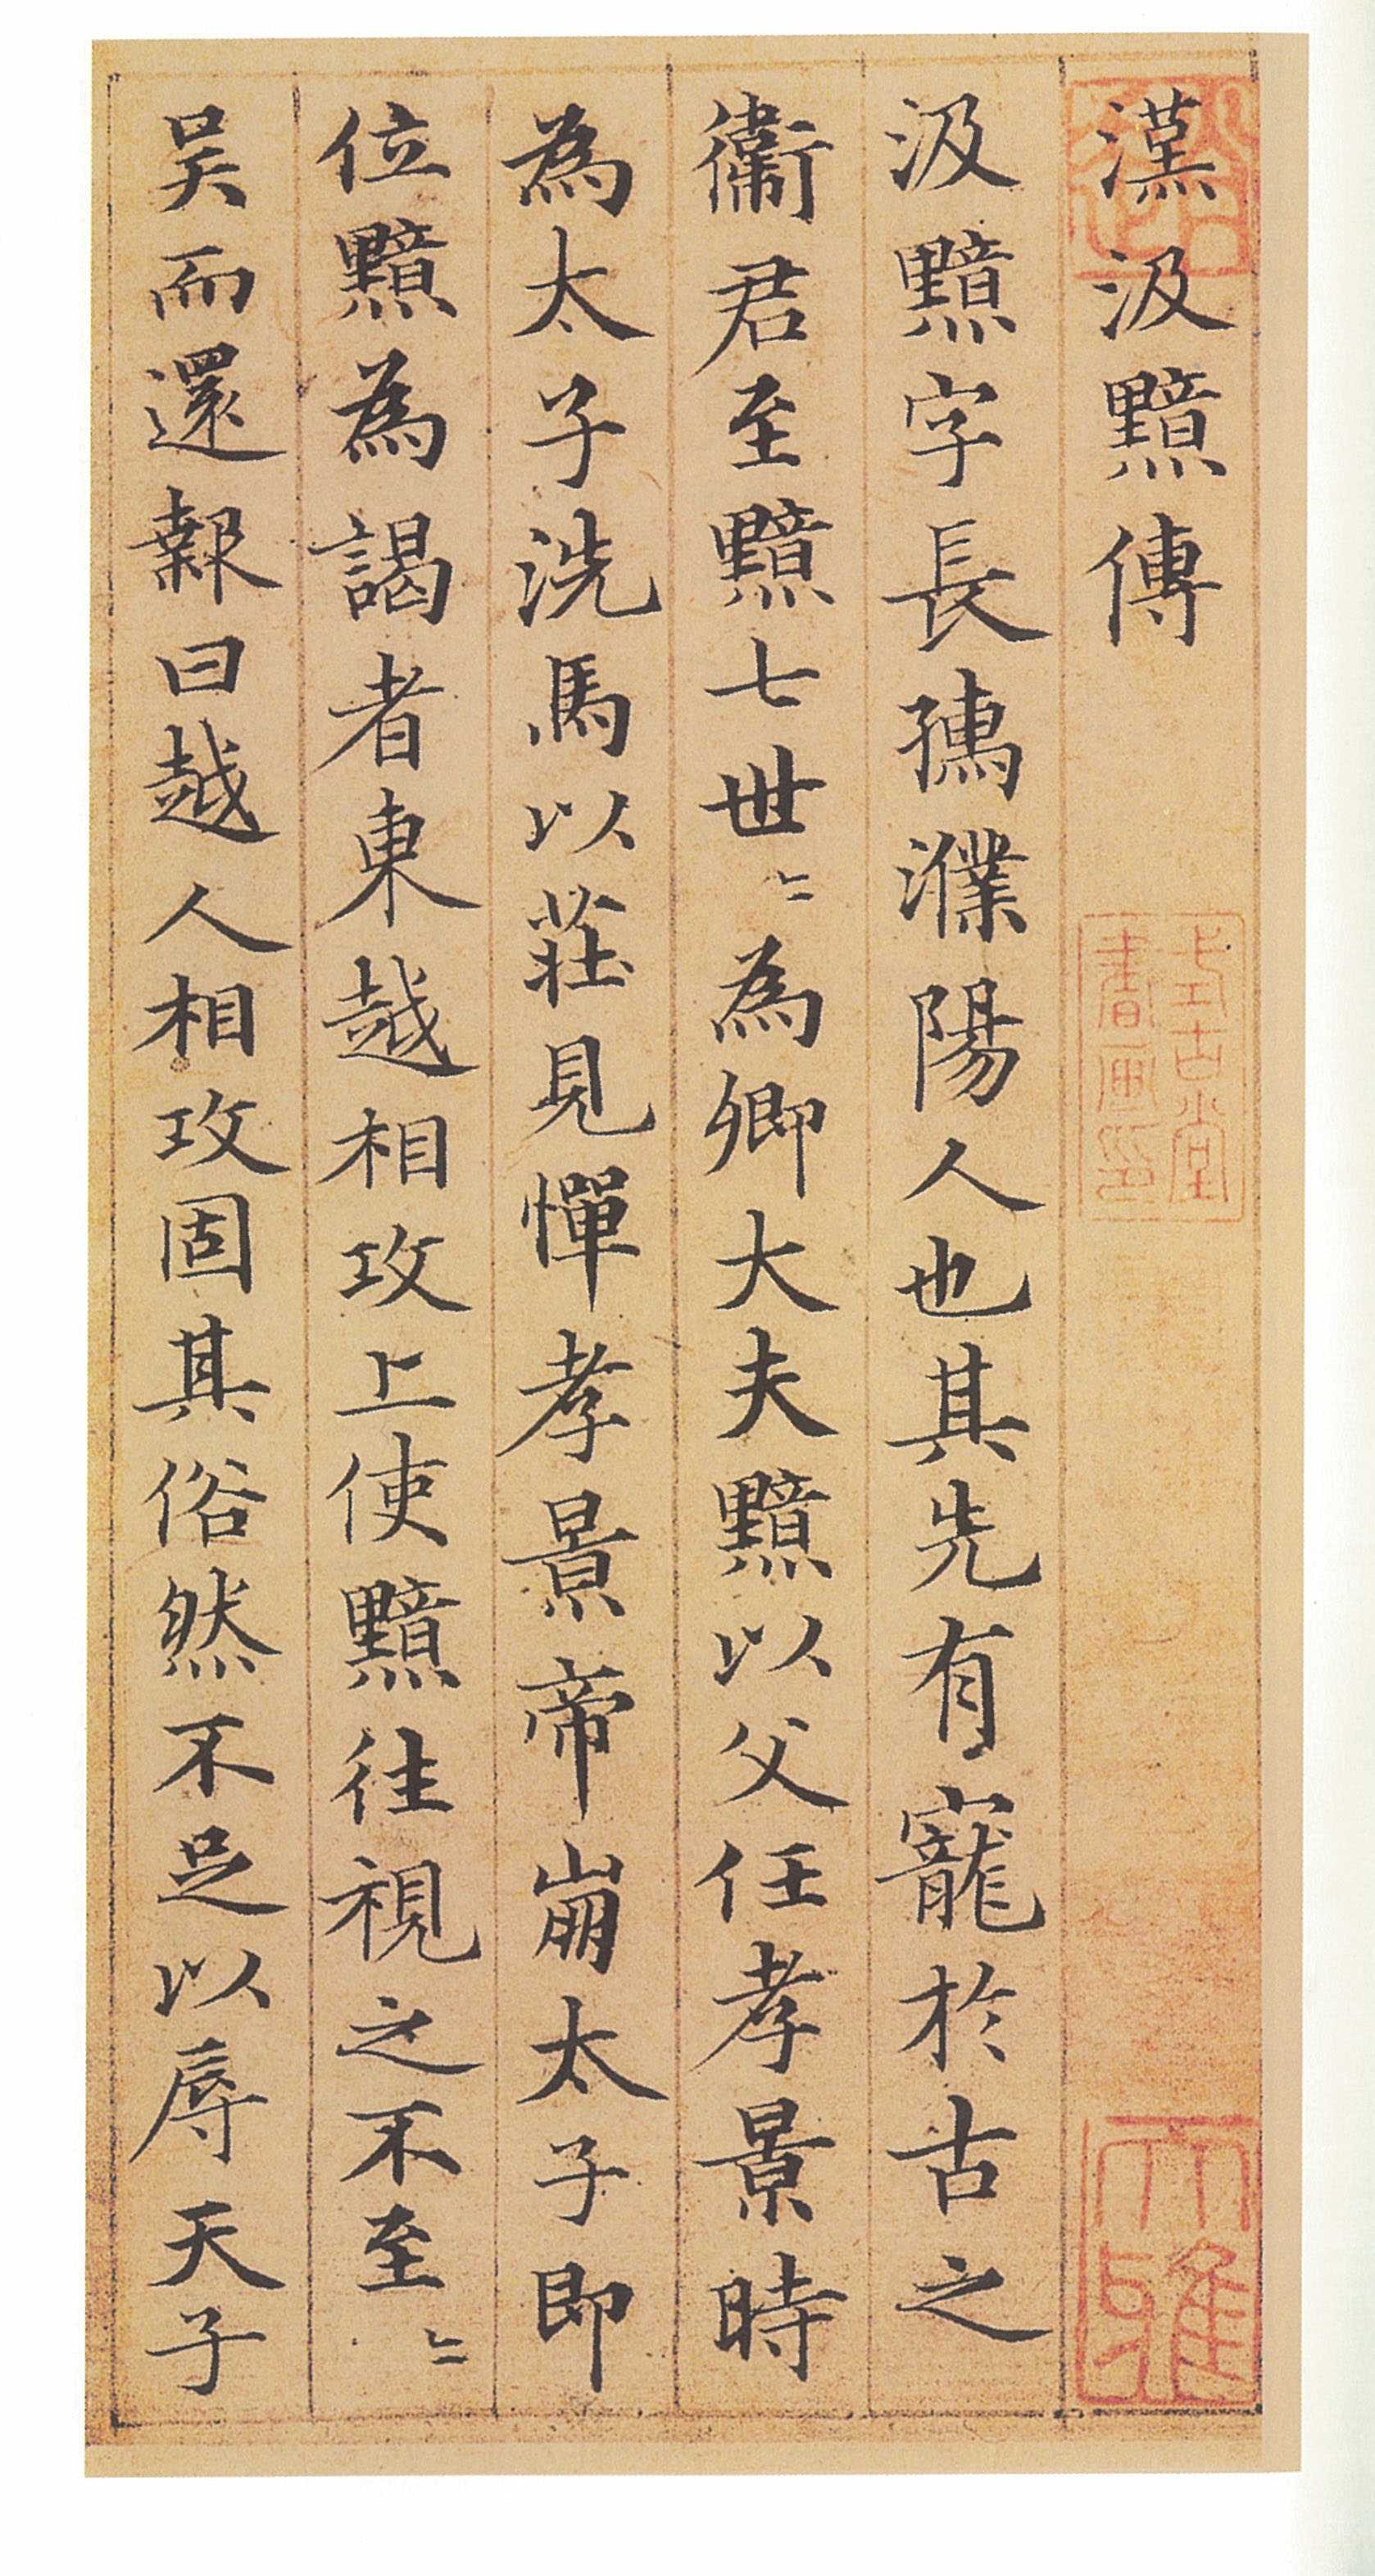 漢汲黯傳
汲黯字長孺濮陽人也其先有寵於古之
衞君至黯七世〻為卿大夫黯以父任孝景時
為太子洗馬以莊見憚孝景帝崩太子即
位黯為謁者東越相攻上使黯往視之不至〻
吴而還報曰越人相攻固其俗然不足以辱天子
式古堂書畫印
大雅